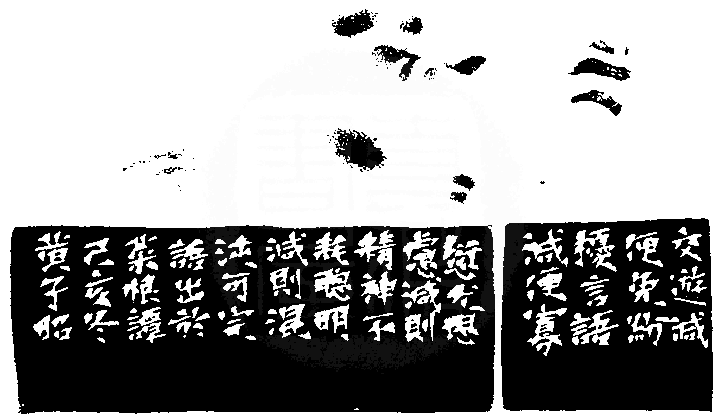 交遊減
便免紛
擾言語
減便寡
愆尤想
慮減則
精神不
耗聰明
減則混
沌可完
語出於
菜根譚
己亥冬
黃子昭